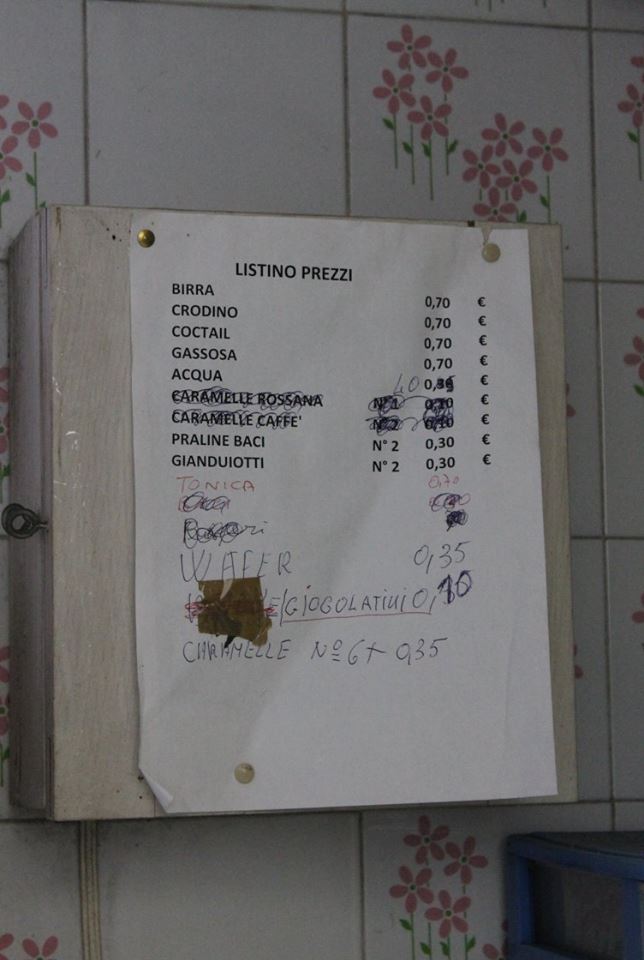 LISTINO PREZZI
BIRRA 0,70 €
CRODINO 0,70 €
COCTAIL 0,70 €
GASSOSA 0,70 €
ACQUA 40 €
CARAMELLE ROSSANA N° 1 €
CARAMELLE CAFFE' N° 2 0,10 €
PRALINE BACI N° 2 0,30 €
GIANDUIOTTI N° 2 0,30 €
TONICA 0,70
WIAFER 0,35
GIOGOLATINI 0,10
CARAMELLE Nº 6 + 0,35